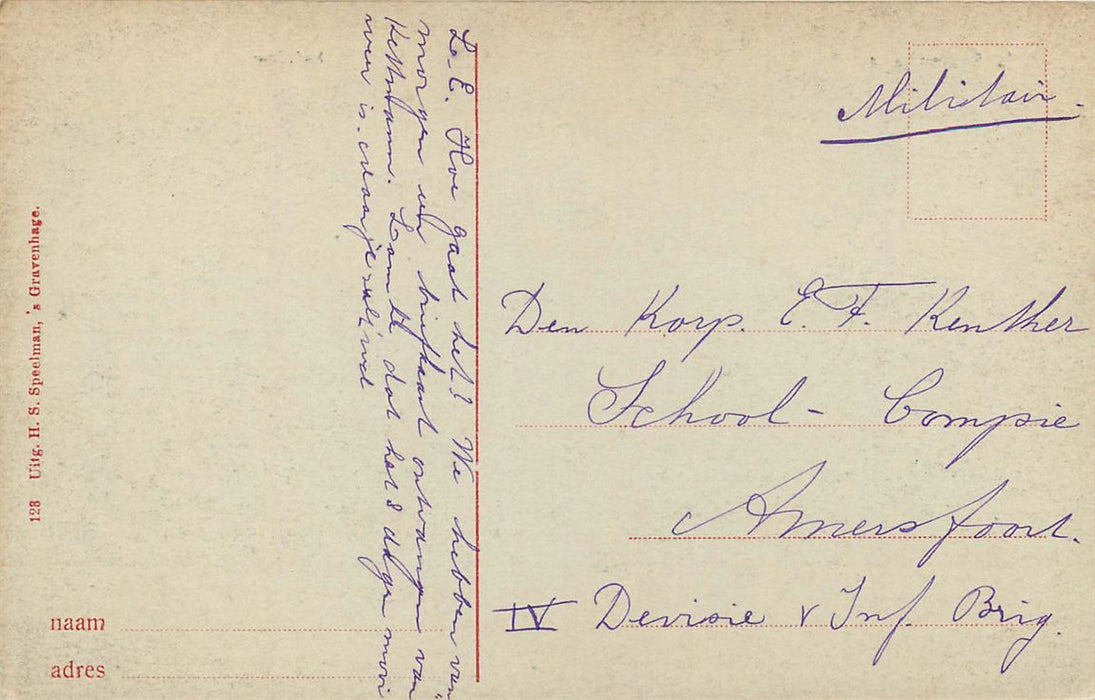 L. E. Hoe gaat het? We hebben van
morgen een briefkaart ontvangen van
dat het 8 dagen mooi
weer is.
Militair.
Den Korp. E. F. Renther
School - Compie
Amersfoort.
IV Devisie V Inf. Brig.
naam
adres
128 Uitg. H. S. Speelman, 's Gravenhage.